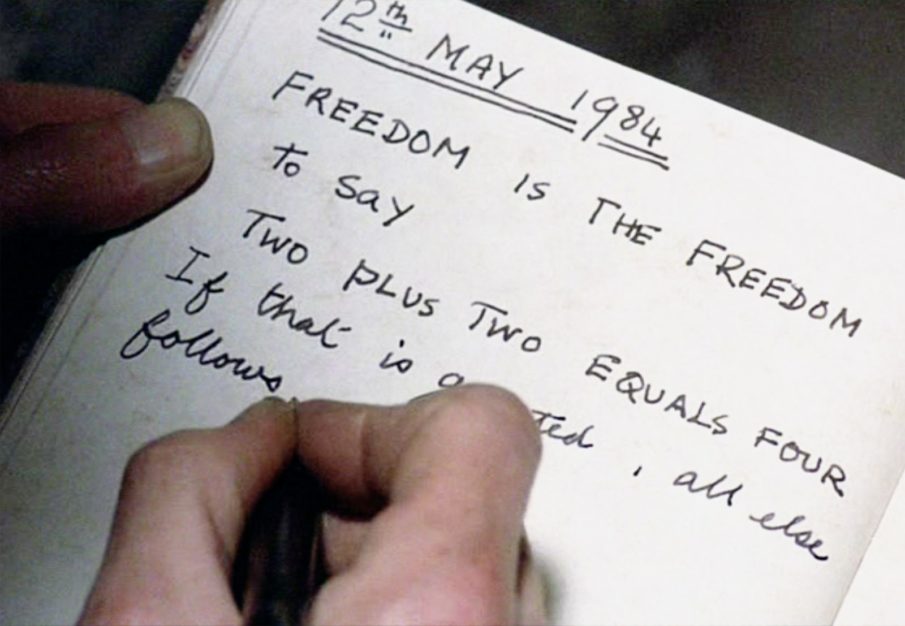 12th MAY 1984
FREEDOM IS THE FREEDOM
To say
TWO PLUS TWO EQUALS FOUR
If that is , all else
follows